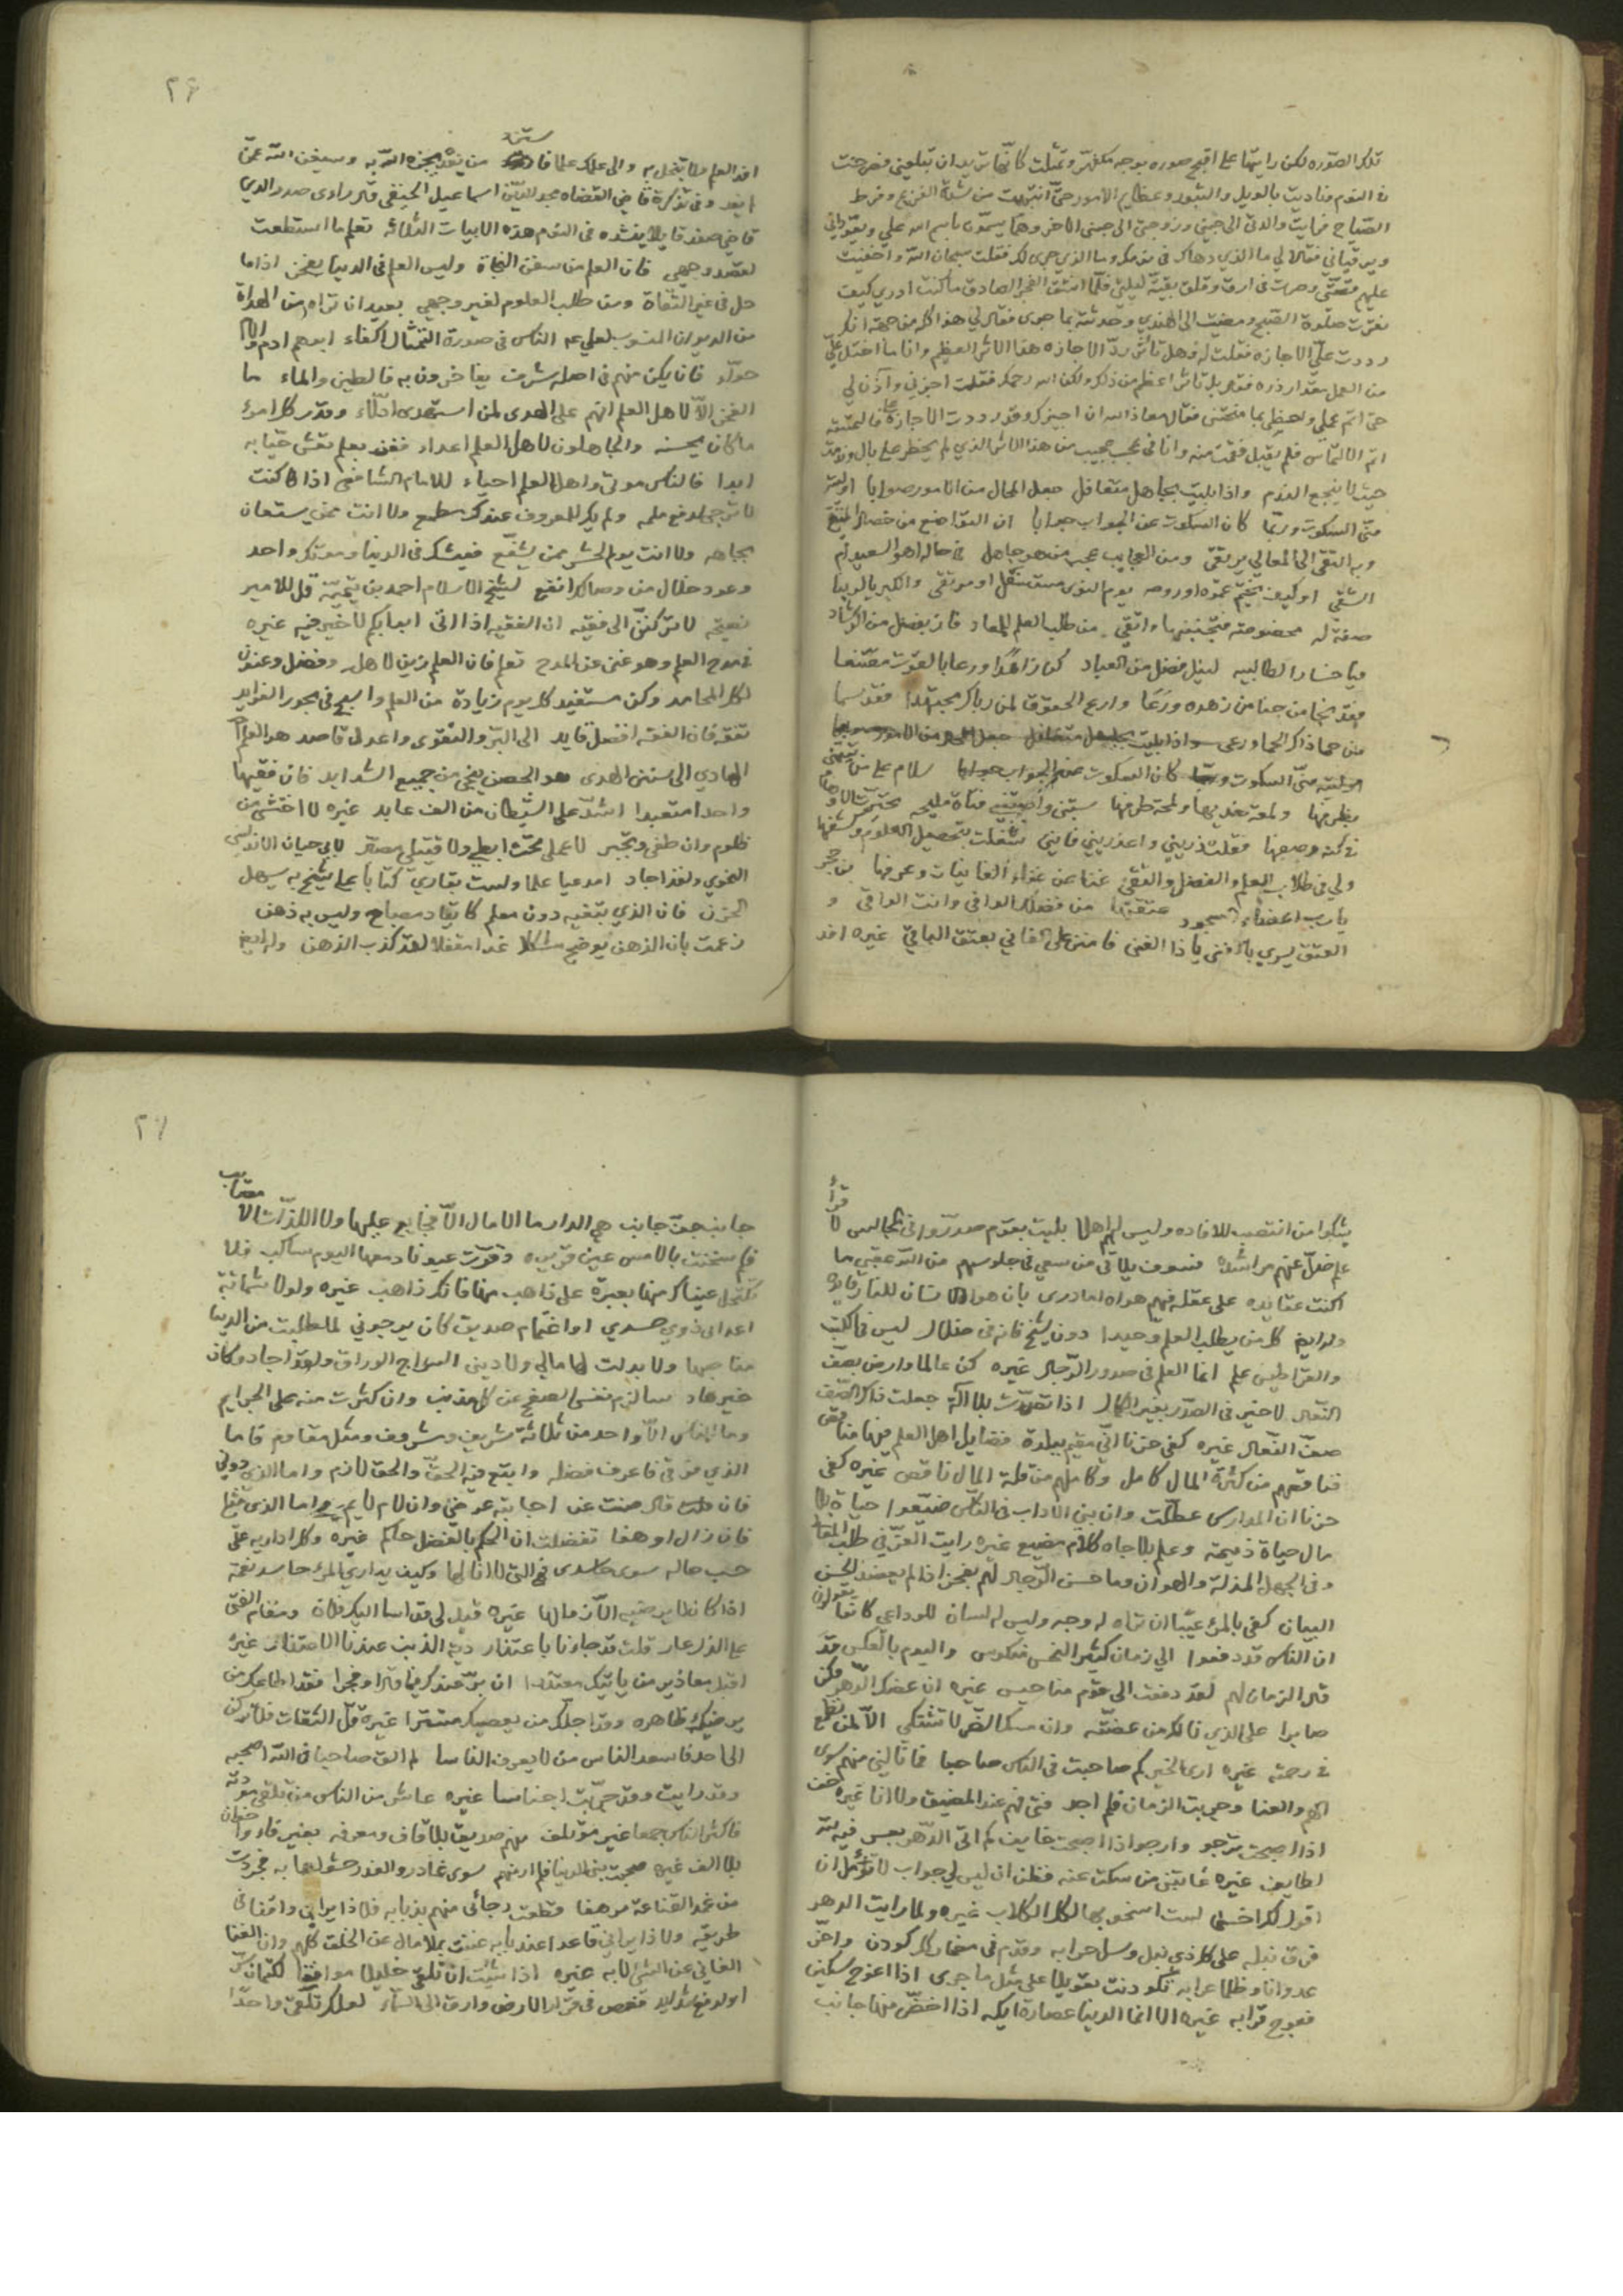 تلك الصوره لكن رايتها على اقبح صوره بوجه مكفهر وتمثلت كانها تريد ان تبلعني فصرخت
في النوم وناديت بالويل والثبور وعظايم الامور حتى انتبهت من شدة الفزع وفرط
الصياح فرايت والدتي الى جنبي وزوجتي الى جنبي الاخر وهما يسمون باسم الله علي ويعوذاني
ويرقياني فقالا لي ما الذي دهاك في نومك وما الذي جرى لك فقلت سبحان الله واخفيت
عليهم قصتي وصرت في ارق وقلق بقية ليلتي فلما انشق الفجر الصادق ما كنت ادري كيف
صلوة الصبح ومضيت الى الهندي وحدثته بما جرى فقال لي هذا كله من جهة انك
رددت علي الاجازه فقلت له وهل تاثير رد الاجازه هذا الاثر العظيم وانا ما اختل علي
من العمل مقدار ذره فقال بل تاثيرا اعظم من ذلك ولكن الله رحمك فقلت اجزني وآذن لي
حتى اتم عملي واحظى بما منحتني فقال معاذ الله ان اجيزك وقد رددت الاجازة
الالتماس فلم يقبل فقمت منه وانا في عجب عجيب من هذا الاثر الذي لم يخطر على بال وندمت
حيث لا ينجع الندم واذا بليت بجاهل متغافل جعل المحال من الامور صوابا اوليته
مني السكوت وربما كان السكوت عن الجواب جوابا ان التواضع من خصال المتقي
وبه التقي الى المعالي يرتقي ومن العجايب عجب من هو جاهل في حاله اهو السعيد ام
الشقي ام كيف يختم عمره او روحه يوم النوى متسفل او مرتقي والكبريا لربنا
صفة له مخصوصة فتجنبنها واتقي من طلب العلم للمعاد فاز بفضل من الرشاد
فيا خسارا لطالبيه لنيل فضل من العباد كن زاهدا ورعا بالقوت مقتنعا
فقد نجا من جنا من زهده ورعا وارع الحقوق لمن رباك مجتهدا فقد سما
من حماذاك الحما ورعى واذا بليت بجاهل متغافل جعل المحال من الامور صوابا
اوليته مني السكوت وربما كان السكوت عن الجواب جوابا سلام على من تيمتني
بظرفها ولمعة خديها ولمحة طرفها سبتني واصبتني فتاة مليحه تحيرت الاوهام
في كنه وصفها فقلت ذريني واعذريني فانني شغلت بتحصيل العلوم وكشفها
ولي في طلاب العلم والفضل والتقى غنا عن غناء الغانيات وعرفها
يا رب اعضاء السجود عتقتها من فضلك الوافي وانت الواقي و
العتق يسري بالفتى يا ذا الغنى فامنن على الفاني بعتق الباقي غيره افد
٢٦
افد العلم ولا تبخل به والى علمك علما فاستزد من يفد يجزه الله به وسيغن الله عمن
لم يفد وفي تذكرة قاضي القضاه مجد الدين اسماعيل الحنفي قال رأوى صدر الدين
قاضي صفد قايلا ينشده في النوم هذه الابيات الثلاثه تعلم ما استطعت
لقصد وجهي فان العلم من سفن النجاة وليس العلم في الدنيا بفخر اذا ما
حل في غير الثقاة ومن طلب العلوم لغير وجهي بعيد ان تراه من الهداة
من الديوان المنسوب لعلي الناس في صورة التمثال اكفاء ابوهم ادم والام
حواء فان يكن لهم في اصلهم شرف يفاخرون به فالطين والماء ما
الفخر الا لاهل العلم انهم على الهدى لمن استهدى ادلاء وقدر كل امرئ
ما كان يحسنه والجاهلون لاهل العلم اعداء ففز بعلم تعش حيا به
ابدا فالناس موتى واهل العلم احياء للامام الشافعي اذا كنت
لا ترجى لدفع ملمة ولم يك للمعروف عندك مطمع ولا انت ممن يستعان
بجاهه ولا انت يوم الحشر ممن يشفع فعيشك في الدنيا وموتك واحد
وعود خلال من وصالك انفع لشيخ الاسلام احمد بن تيمية قل للامير
نصيحة لا تركنن الى فقيه ان الفقيه اذا اتى ابوابكم لا خير فيه غيره
في مدح العلم وهو غني عن المدح تعلم فان العلم زين لاهله وفضل وعنوان
لكل المحامد وكن مستفيد كل يوم زيادة من العلم واسبح في بحور الفوايد
تفقه فان الفقه افضل قايد الى البر والتقوى واعدل قاصد هو العلم
الهادي الى سنن الهدى هو الحصن ينجي من جميع الشدايد فان فقيها
واحدا متعبدا اشد على الشيطان من الف عابد غيره لا اختشي من
ظلوم وان طغى وتجبر لا عملي تحت ابطي ولا قتيلي مصفر لابي حيان الاندلسي
النحوي ولقد اجاد امدعيا علما ولست بقاري كتابا على شيخ به يسهل
الحزن فان الذي يبتغيه دون معلم كايقاد مصباح وليس به دهن
زعمت بان الذهن يوضح مشكلا غدا مقفلا لقد كذب الذهن وله ايضا
يشكوا من انتصب للافاده وليس لهم اهلا بليت بقوم صدروا في المجالس لاقرأ
علم ضل عنهم مراشده فسوف يلاقي من سعى في جلوسهم من الله عقبى ما
اكنت عقايده على عقله فيهم هواه اما درى بان هوى الانسان للنار قايده
وله ايضا كل من يطلب العلم وحيدا دون شيخ فانه في ضلال ليس في الكتب
والقراطيس علم انما العلم في صدور الرجال غيره كن عالما وارض بصف
النعال لا خير في الصدر بغير الكمال اذا تصدرت بلا آلة جعلت ذاك الصف
صف النعال غيره كفى حزنا اني مقيم ببلدة فضايل اهل العلم فيها مناقص
فناقصهم من كثرة المال كامل وكاملهم من قلة المال ناقص غيره كفى
حزنا ان المدارس عطلت وان بني الاداب في الناس ضيعوا حياة بلا
مال حياة ذميمة وعلم بلا جاه كلام مضيع غيره رايت العز في طلب المعالي
وفي الجهل المذلة والهوان وما حسن الرجال لهم بفخر اذا لم يعضد الحسن
البيان كفى بالمرء عيبا ان تراه له وجه وليس له لسان للوداعي كانوا يقولون
ان الناس قد دفعوا الى زمان كثير النحس منكوس واليوم بالعكس قد
قال الزمان لهم لقد دفعت الى قوم مناحيس غيره ان عضك الدهر فكن
صابرا على الذي نالك من عضته وان مسك الضر لا تشتكي الا لمن تطمع
في رحمته غيره ارى الخير كم صاحبت في الناس صاحبا فما نالني منهم سوى
الهم والعنا وجربت ابناء الزمان فلم اجد فتى منهم عند المضيق ولا انا غيره خف
اذا اصبحت ترجو وارجو اذا اصبحت خايف كم اتى الدهر بعسر فيه لله
لطايف غيره عابني من سكت عنه فظن ان ليس لي جواب لا تؤمل ان
اقول لك اخسا لست اسخو بها لكل الكلاب غيره ولما رايت الدهر
فوق نبله على كل ذي نبل وسل حرابه وقدم في مضماره كل كودن واخر
عدوانا وظلما عرابه تكودنت تعويلا على مثل ما جرى اذا اعوج سكين
فعوج قرابه غيره الا انما الدنيا عصارة ايكه اذا اخضر منها جانب
٢٧
جانب جف جانب هي الدار ما الامال الا فجايع عليها ولا اللذات الا مصايب
فكم سخنت بالامس عين قريره وقرت عيونا دمعها اليوم ساكب فلا
تكتحل عيناك منها بعبرة على ذاهب منها فانك ذاهب غيره ولولا شماتة
اعدائي ذوي حسدي او اغتمام صديق كان يرجوني لما طلبت من الدنيا
مناصبها ولا بذلت لها مالي ولا ديني السراج الوراق ولقد اجاد وكان
خيرهاد سالزم نفسي الصفح عن كل مذنب وان كثرت منه علي الجرايم
وما الناس الا واحد من ثلاثة شريف ومشروف ومثل مقاوم فاما
الذي فوقي فاعرف فضله واتبع فيه الحق والحق لازم واما الذي دوني
فان قال صنت عن اجابته عرضي وان لام لايم واما الذي مثلي
فان زال او هفا تفضلت ان الحكم بالفضل حاكم غيره وكل اداريه على
حسب حاله سوى حاسدي فهي التي لا انالها وكيف يداري المرء حاسد نعمة
اذا كان لا يرضيه الا زوالها غيره قيل لي قد اسا اليك فلان ومقام الفتى
على الذل عار قلت قد جاءنا باعتذار دية الذنب عندنا الاعتذار غيره
اقبل معاذير من ياتيك معتذرا ان بر عندك فيما قال او فجرا فقد اطاعك من
يرضيك ظاهره وقد اجلك من يعصيك مستترا غيره قل الثقات فلا تركن
الى احد فاسعد الناس من لا يعرف الناسا لم الق صاحبا في الله اصحبه
وقد رايت وقد جربت اجناسا غيره عاشر من الناس من تلقى مودته
فاكثر الناس جمعا غير مؤتلف منهم صديق بلا قاف ومعرفه بغير فاء واخوان
بلا الف غيره صحبت بني الدنيا فلم ار منهم سوى غادر والغدر حشو اهابه فجردت
من غمد القناعة مرهفا قطعت رجائي منهم بذبابه فلا ذا يراني واقفا في
طريقه ولا ذا يراني قاعدا عند بابه غنيت بلا مال عن الخلق كلهم وان الغنا
الغالي عن الشي لا به غيره اذا شئت ان تلقى خليلا موافقا لكتمان سر
او لدفع شدايد فغص في قرار الارض وارق الى السماء لعلك تلقى واحدا